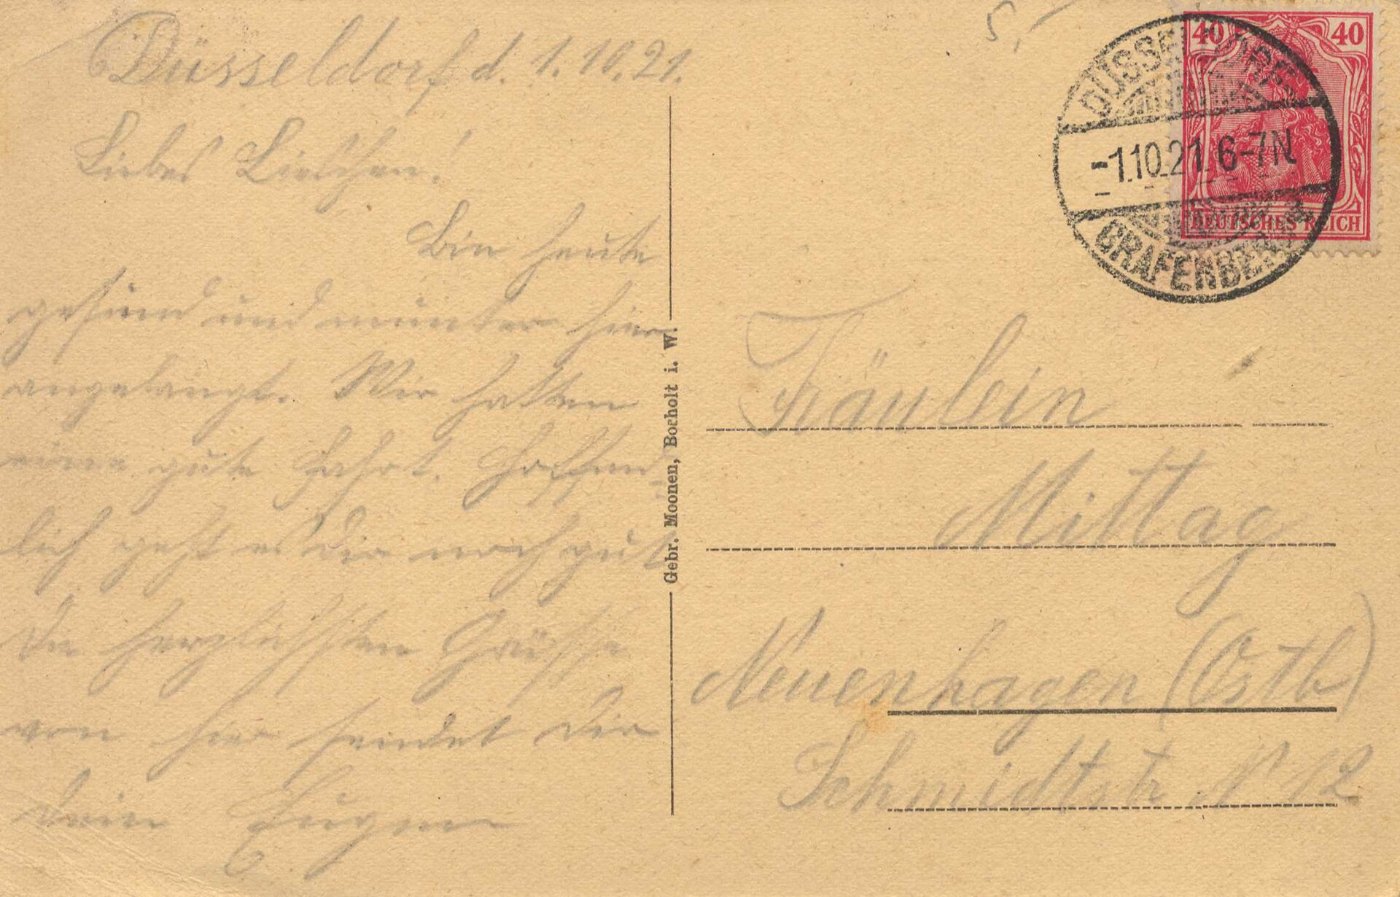 Düsseldorf d. 1.10.21.
Liebes Lieschen!
Bin heute
gesund und munter hier
angelangt. Wir hatten
eine gute Fahrt. Hoffent-
lich geht es Dir noch gut
Die herzlichsten Grüsse
von hier sendet Dir
Dein Eugen
Gebr. Moonen, Bocholt i. W.
5,-
40 40
DEUTSCHES REICH
DÜSSELDORF
-1.10.21.6-7N
GRAFENBERG
Fräulein
Mittag
Neuenhagen (Ostb)
Schmidtstr N 12